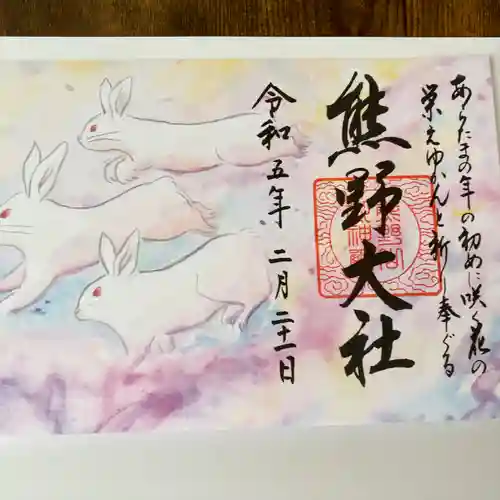 あらたまの年の初めに咲く花の
栄えゆかんと祈し奉ぐる
熊野大社
令和五年 二月二十一日